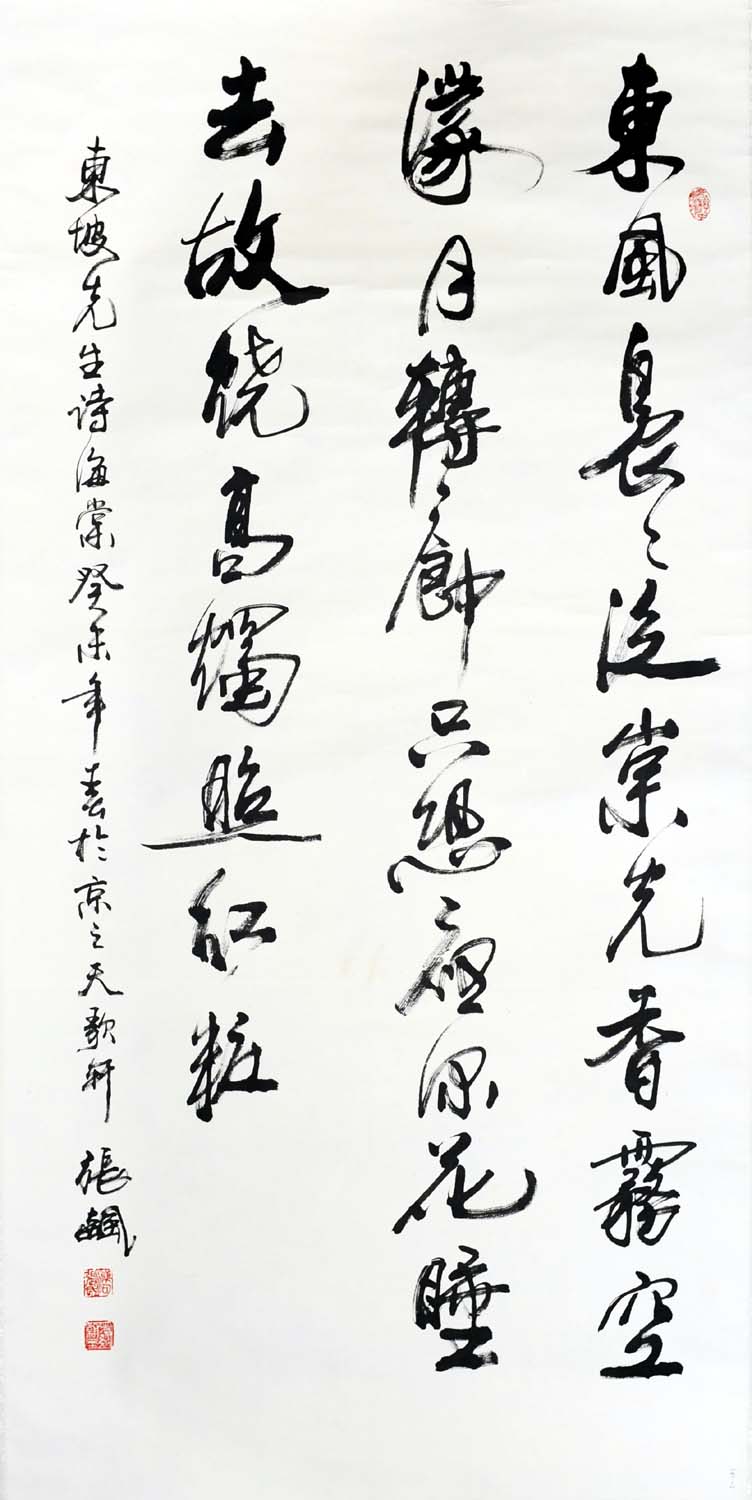 東風裊々泛崇光香霧空
濛月轉廊只恐夜深花睡
去故燒高燭照紅粧
東坡先生詩海棠癸未年春於京之天歌軒
張飆